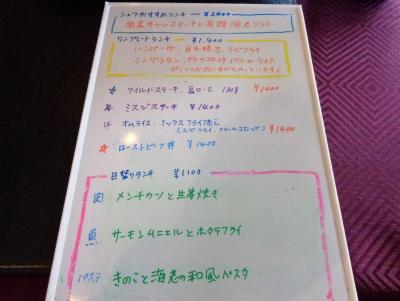 シェフおすすめランチ ¥2400
国産牛ヒレステーキと有頭海老フライ
ワンプレートランチ ¥1,400
ハンバーグ、生姜焼き、エビフライ
ミニグラタン、クリームコロッケ パン or ライス
が1つのお皿にすべてのっています。
☆ ワイルドステーキ 肩ロース 130g ¥1400
ミスジステーキ ¥1400
オムライス、ミックスフライ添え
(エビフライ、クリームコロッケ) ¥1400
☆ ローストビーフ丼 ¥1400
日替りランチ ¥1100
肉 メンチカツと生姜焼き
魚 サーモンムニエルとホタテフライ
パスタ きのこと海老の和風パスタ